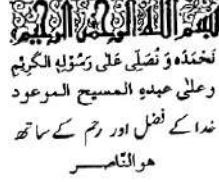 بسم الله الرحمن الرحيم
نَحْمَدُهٗ وَ نُصَلِّی عَلٰی رَسُوْلِهِ الْكَرِیْمِ
وعلٰی عبدہِ المسیح الموعود
خدا کے فضل اور رحم کے ساتھ
ھوالنّاصــر